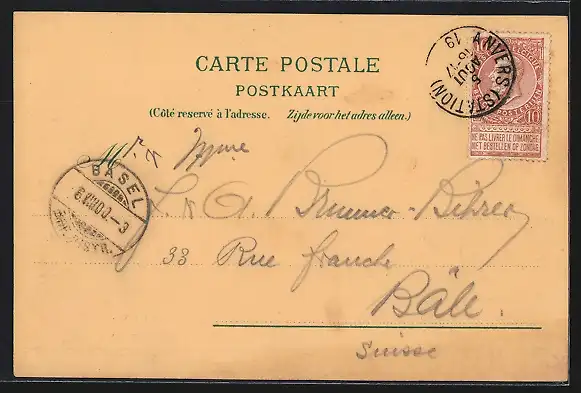 CARTE POSTALE
POSTKAART
(Côté reservé à l'adresse. Zijde voor het adres alleen.)
ANVERS (STATION)
5
AOUT
16-17
19
10
NE PAS LIVRER LE DIMANCHE
NIET BESTELLEN OP ZONDAG
BASEL
6.VIII.00.-3
Mme
33 Rue franche
Bâle.
Suisse